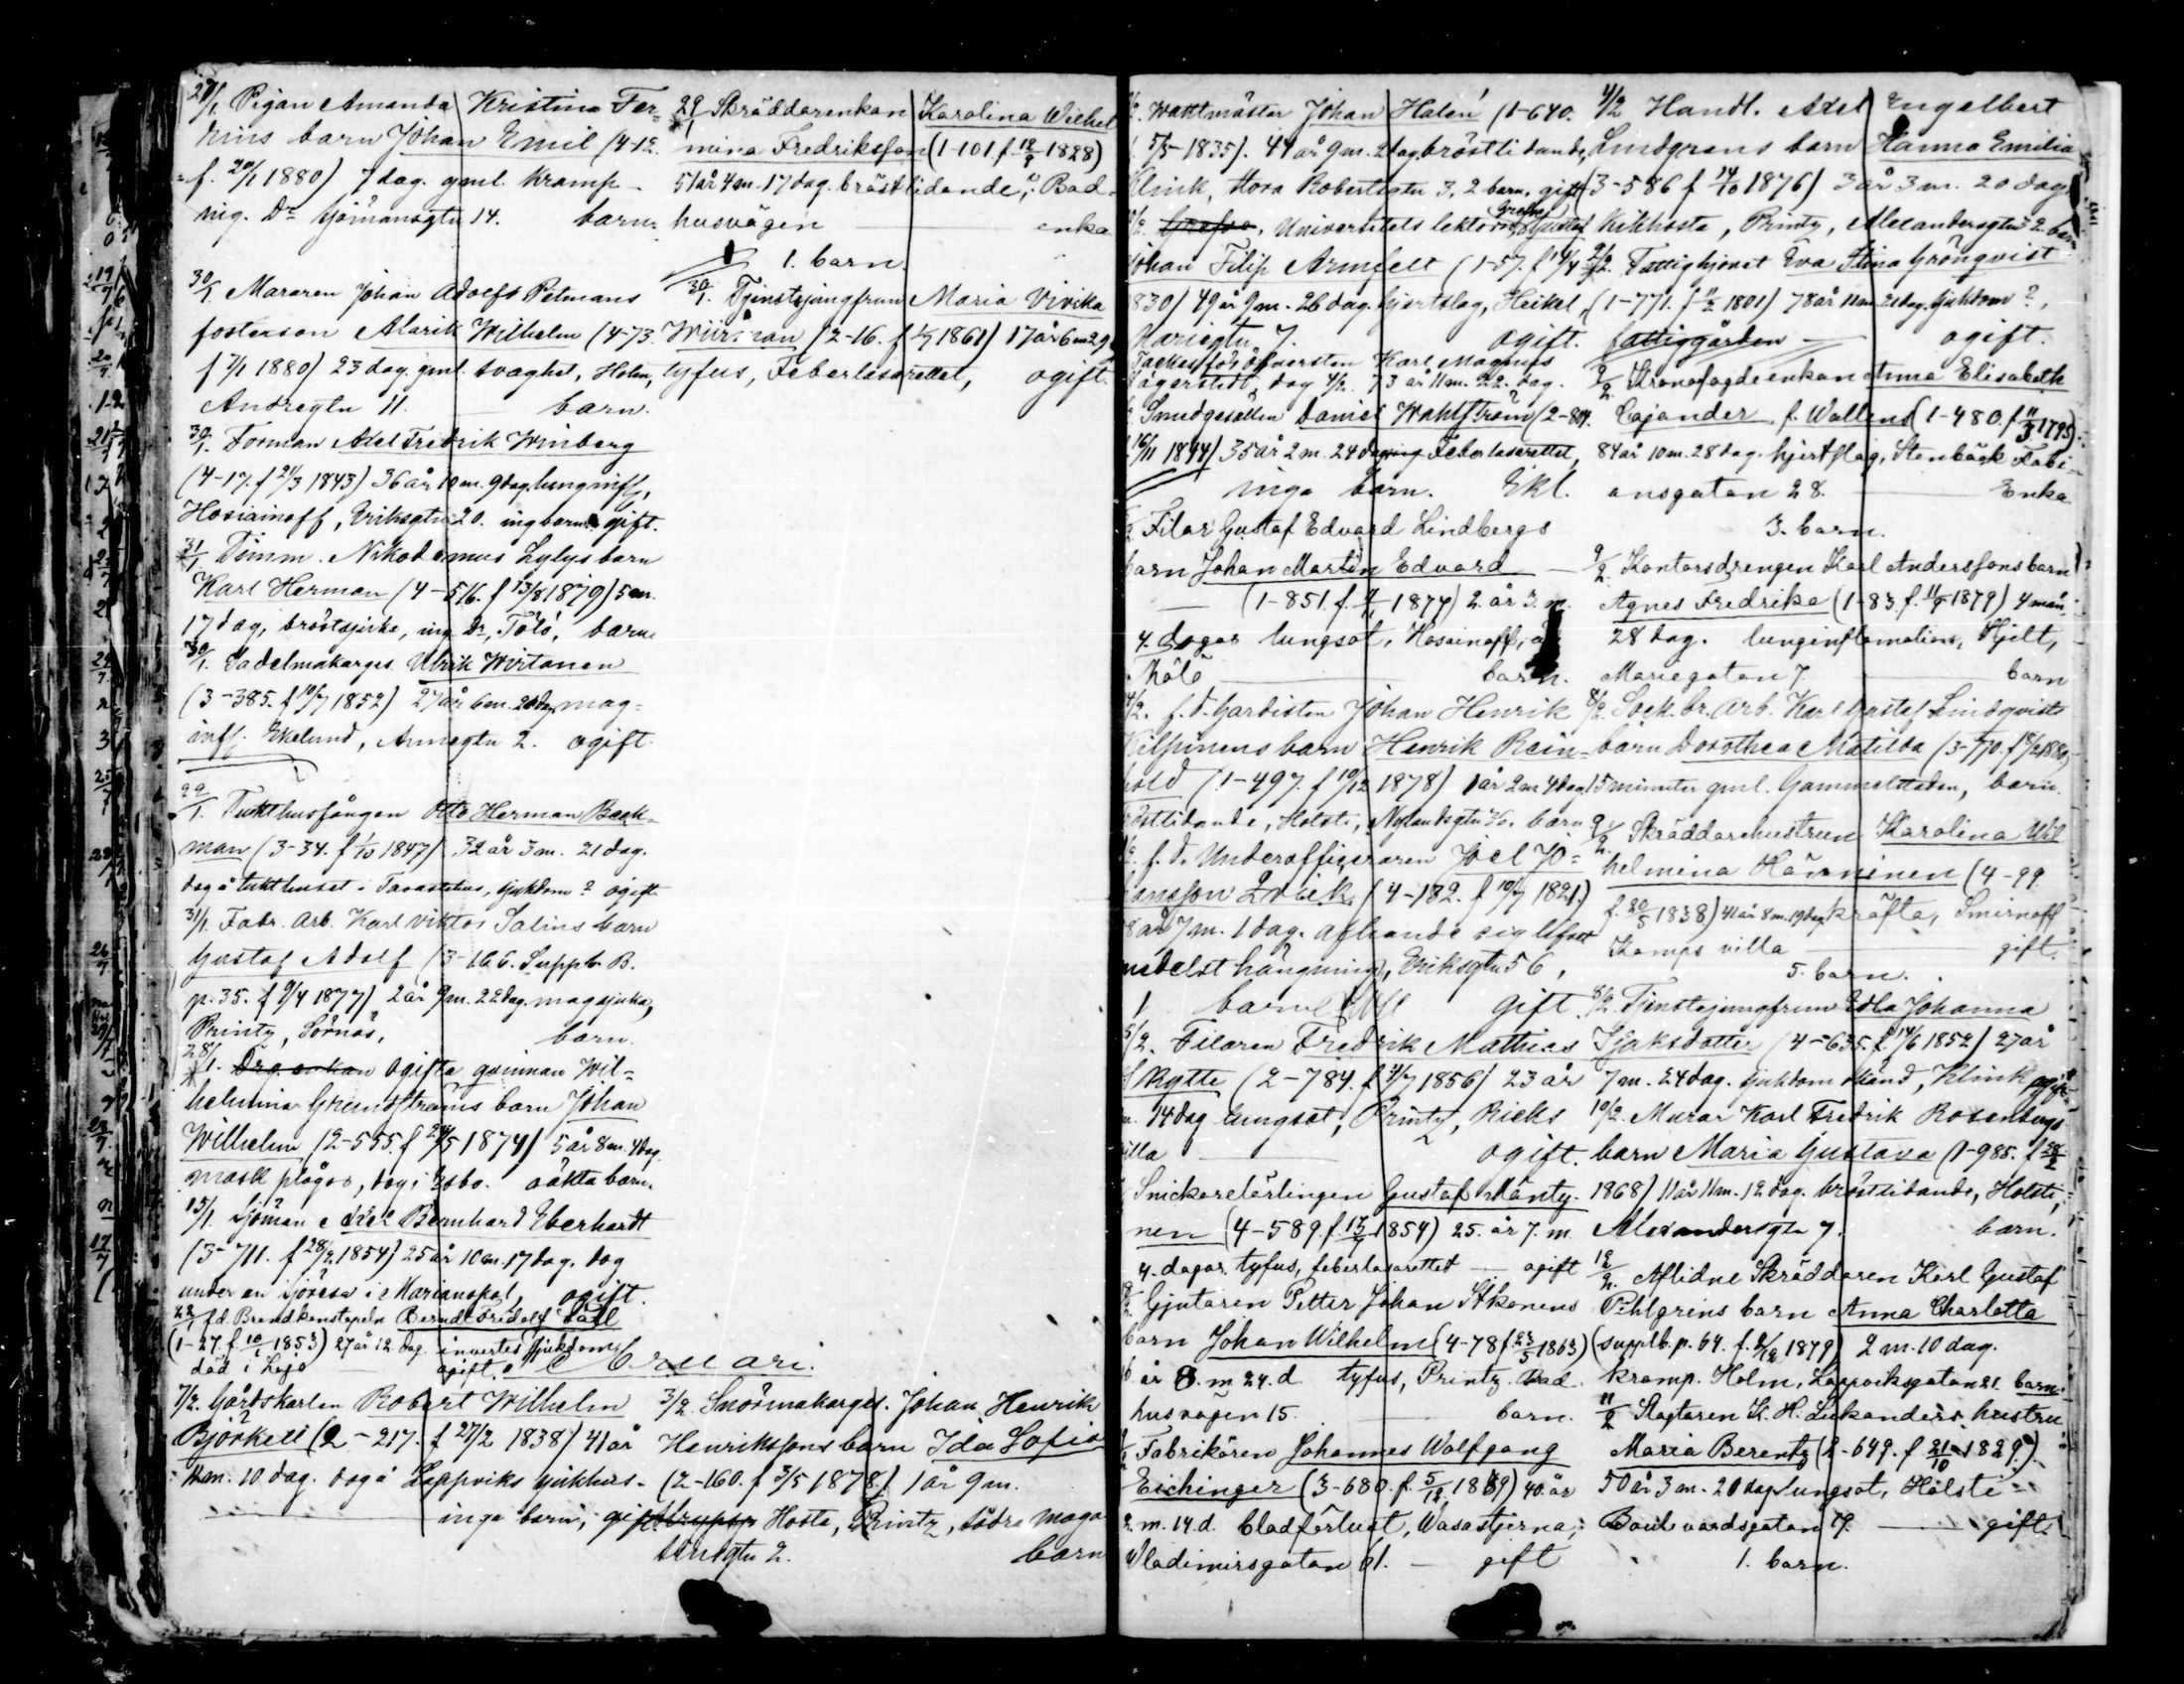 27/1 Pigan Amanda Kristina Fer-
nins barn Johan Emil (4-12.
f. 20/1 1880) 7 dag. gml. kramp
ing. Dr Sjömansgtn 14. barn.
30/1 Muraren Johan Adolfs Petmans
fosterson Alarik Wilhelm (4-73.
f 7/1 1880) 23 dag. gml. svaghet, Holm,
Andregtn 11. barn.
30/1. Forman Axel Fredrik Winberg
(4-17. f 21/3 1843) 36 år 10 m. 9 dag. lunginfl.,
Hosiainoff, Eriksgtn 20. ing barn gift.
31/1 Timm. Nikodemus Lylys barn
Karl Herman (4-516. f 13/8 1879) 5 m.
17 dag, bröstsjuka, ing Dr, Tölö, barn
30/1. Sadelmakarges. Ulrik Wirtanen
(3-385. f 10/7 1852) 27 år 6 m. 20 dag mag-
infl. Ekelund, Annegtn 2. ogift.
22/1. Tukthusfången Otto Herman Back-
man (3-34. f 1/10 1847) 32 år 3 m. 21 dag.
dog å tukthuset i Tavastehus, sjukdom? ogift
31/1 Fabr. arb. Karl Viktor Salins barn
Gustaf Adolf (3-166. Supplb B.
p. 35. f 9/4 1877) 2 år 9 m. 22 dag. magsjuka,
Printz, Sörnäs, barn.
28/1. Drg. enkan ogifta qvinnan Wil-
helmina Grundströms barn Johan
Wilhelm (2-555. f 24/5 1874) 5 år 8 m. 4 dag.
mask plågor, dog i Esbo. oäkta barn.
15/1. Sjöman Axel Bernhard Eberhardt
(3-711. f 28/2 1854) 25 år 10 m. 17 dag. dog
under en sjöresa i Marianopol, ogift.
22/1 f.d. Brandkonstapeln Berndt Fridolf Säll
(1-27. f. 10/1 1853) 27 år 12 dag. invertes sjukdom
död i Lojo ogift.
29/1 Skräddarenkan Karolina Wilhel
mina Fredriksson (1-101 f. 12/9 1828)
51 år 4 m. 17 dag. bröstlidande, Bad-
husvägen enka
1. barn.
30/1. Tjenstejungfrun Maria Vivika
(2-16. f 1/7 1861) 17 år 6 m 29
tyfus, Feberlasarettet, ogift.
bruari.
7/2. Gårdskarlen Robert Wilhelm
Björkell (2-217. f 27/2 1838) 41 år
11 m. 10 dag. dog å Lappviks sjukhus
inga barn, gift
3/2. Snörmakarges. Johan Henrik
Henrikssons barn Ida Sofia
(2-160. f 3/5 1878.) 1 år 9 m.
Hosta, Printz, södra Maga
sinsgtn 2. barn
Waktmäster Johan Halén (1-640.
5/5 1835). 44 år 9 m. 2 dag bröstlidande,
Klink, stora Robertsgtn 3, 2 barn. gift
Grefve, Universitets lektorn, Grefve Gustaf
Johan Filip Armfelt (1-57. f 14/4
1830) 49 år 9 m. 26 dag. hjertslag, Heikel,
Mariegtn 7. ogift.
för öfversten Karl Magnus
Lagerstedt, dog 4/2. 73 år 11 m. 22. dag.
Smedgesällen Daniel Wahlström (2-804.
16/11 1844) 35 år 2 m. 24 dag Feberlasarettet,
inga barn. Ekl.
Filar Gustaf Edvard Lindbergs
barn Johan Martin Edvard
(1-851. f. 1877) 2. år 3. m.
4. dagar lungsot, Hosainoff,
Tölö barn.
4/2. f. d. Gardisten Johan Henrik
Kilpinens barn Henrik Rein-
hold (1-497. f 10/12 1878) 1 år 2 m 4 dag
bröstlidande, Holsti, Nylandsgtn barn
f. d. Underofficeraren Joel Jo-
hansson Zweek (4-182. f 10/7 1821.)
58 år 7 m. 1 dag. afhände sig lifvet
medelst hängning, Eriksgtn 56,
1 barn gift
5/2. Filaren Fredrik Mathias
Skytte (2-784. f 21/7 1856) 23 år
m. 14 dag lungsot, Printz, Ricks
villa ogift.
Snickarelärlingen Gustaf Mänty-
nen (4-589. f. 13/7 1854) 25. år 7. m.
4. dagar. tyfus, feberlasarettet ogift
Gjutaren Petter Johan Itkonens
barn Johan Wilhelm (4-78 f 23/5 1863)
16 år 8. m 24. d tyfus, Printz. Bad-
husvägen 15. barn.
Fabrikören Johannes Wolfgang
Eichinger (3-680. f. 5/12 1839) 40. år
2. m. 14. d. blodförlust, Wasastjerna;
Wladimirsgatan 61. gift
4/2 Handl. Axel Engelbert
Lindgrens barn Hanna Emilia
(3-586 f 14/10 1876) 3 år 3 m. 20 dag
Kikhosta, Printz, Alexandersgtn 32 barn
9/2. Fattighjonet Eva Stina Grönqvist
(1-771. f 11/2 1801) 78 år 11 m. 21 dag. sjukdom?,
fattiggården ogift.
9/2. Kronofogdeenkan Anna Elisabeth
Cajander f. Wallens (1-480. f 11/3 1795)
84 år 10 m. 28 dag. hjertslag, Stenbäck Fabi-
ansgatan 28. Enka
3. barn.
9/2. Kontorsdrengen Karl Anderssons barn
Agnes Fredrika (1-83. f. 11/9 1879) 4 mån.
28 dag. lunginflamation, Hjelt,
Mariegatan 7 barn
8/2. Sock. br. arb. Karl Gustaf Lindqvists
barn Dorothea Matilda (3-770. f 8/2 1880)
15 minuter gml. Gammelstaden, barn.
9/2. Skräddarehustrun Karolina Wil
helmina Hänninen (4-99
f. 20/5 1838) 41 år 8 m. 19 dag kräfta, Smirnoff
Kamps villa gift.
5. barn.
8/2. Tjenstejungfrun Edla Johanna
Isaksdotter (4-635. f. 14/6 1852) 27 år
7 m. 24 dag. sjukdom okänd, Klink ogift
10/2. Murar Karl Fredrik Rosenbergs
barn Maria Gustava (1-985. f 28/2
1868) 11 år 11 m. 12 dag. bröstlidande, Holsti,
Alexandersgtn 7. barn.
12/2. Aflidne Skräddaren Karl Gustaf
Pihlgrens barn Anna Charlotta
(supplb. p. 64. f. 2/12 1879) 2 m. 10 dag.
kramp. Holm, Lappviksgatan 21. barn.
11/2 Slagtaren K. H. Lukanders hustru
Maria Berentz (2-649. f 21/10 1829.)
50 år 3 m. 20 dag lungsot, Holsti
Boulevardsgatan 19. gift.
1. barn.